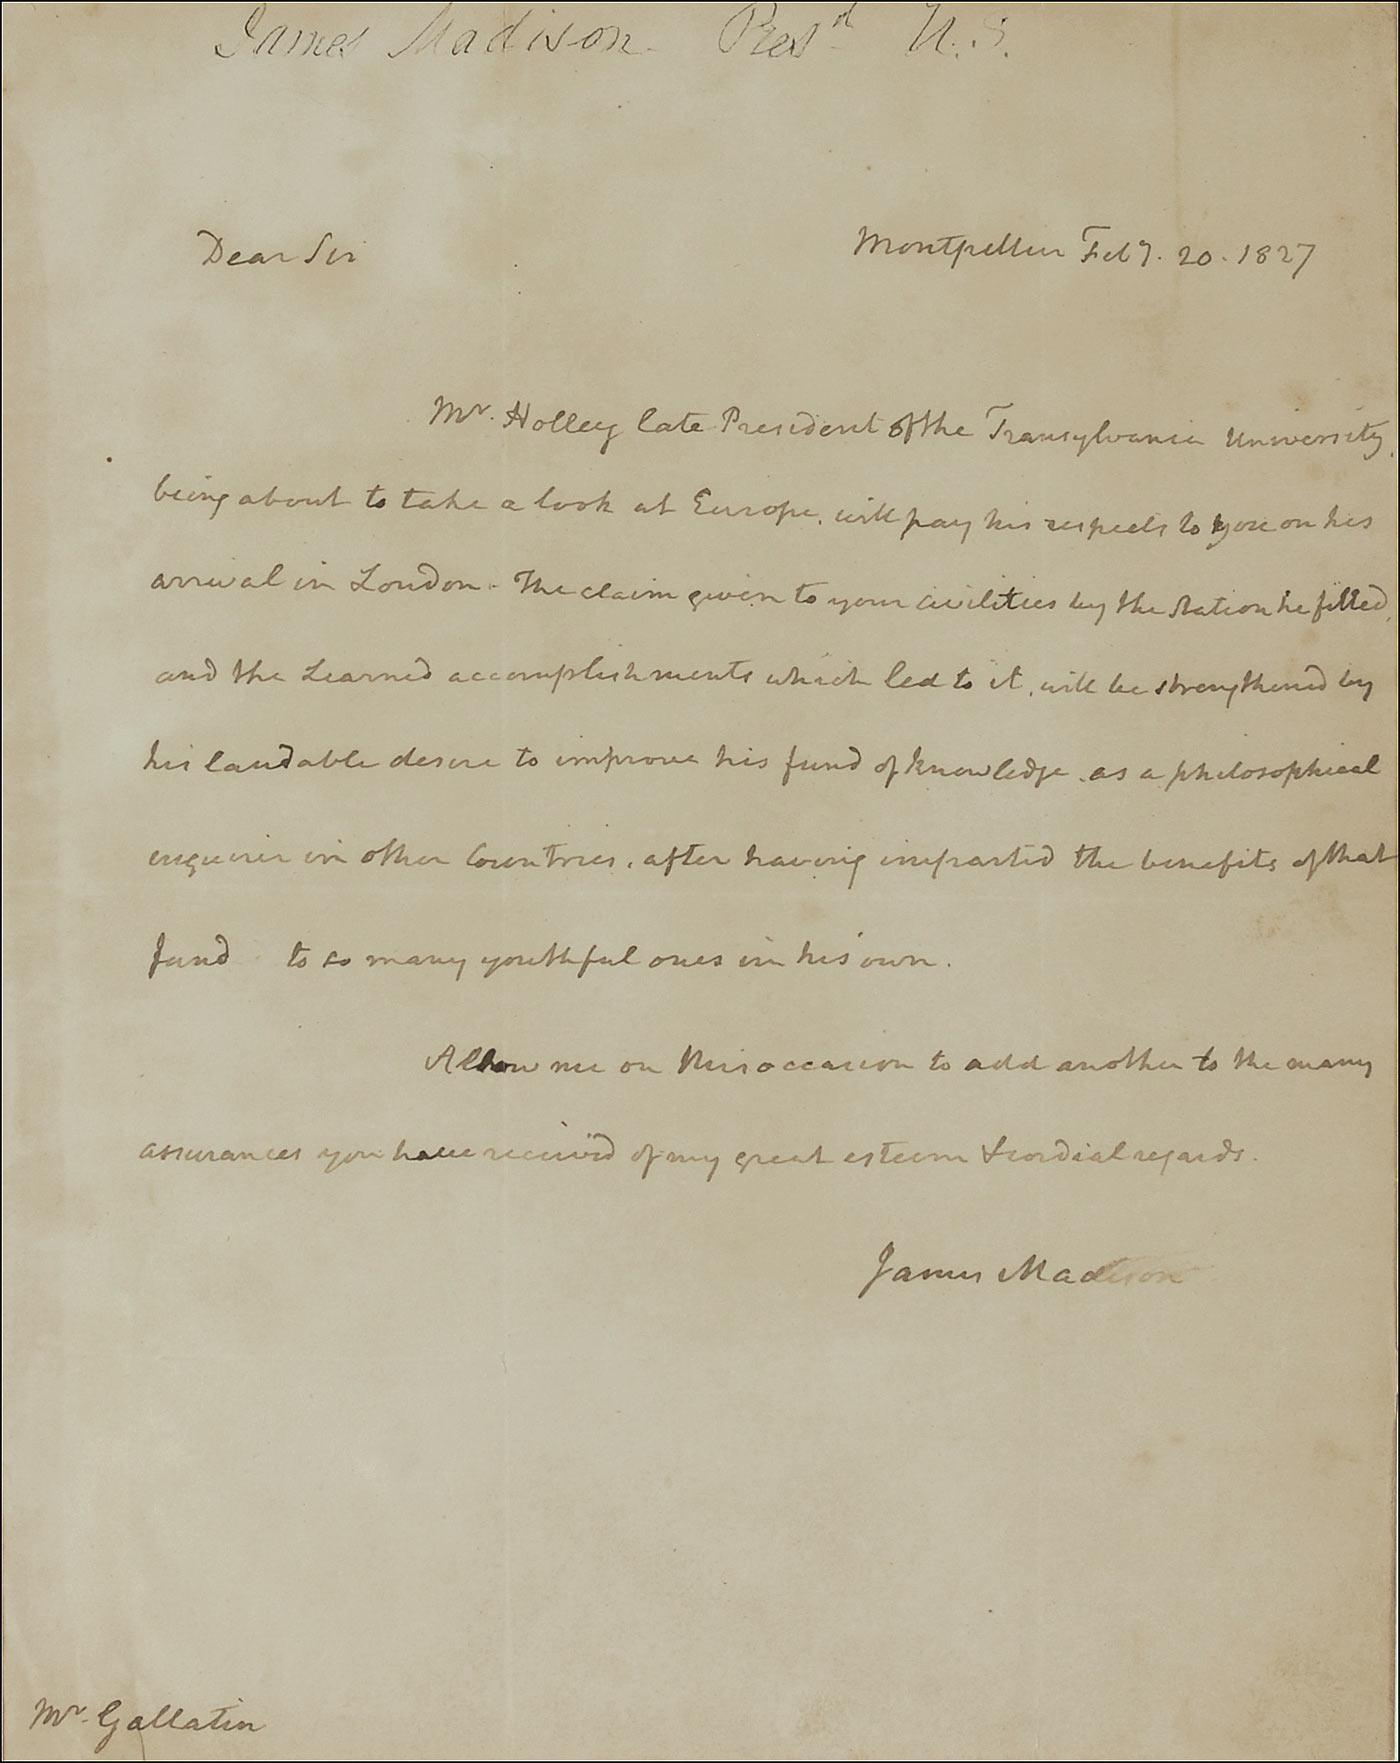 James Madison Presd. U.S.
Dear Sir
Montpellier Feby. 20. 1827
Mr. Holley late President of the Transylvania University,
being about to take a look at Europe, will pay his respects to you on his
arrival in London. The claim given to your civilities by the station he filled,
and the Learned accomplishments which led to it, will be strengthened by
his laudable desire to improve his fund of knowledge, as a philosophical
enquirer in other Countries, after having imparted the benefits of that
fund to so many youthful ones in his own.
Allow me on this occasion to add another to the many
assurances you have received of my great esteem & cordial regards.
James Madison
Mr. Gallatin